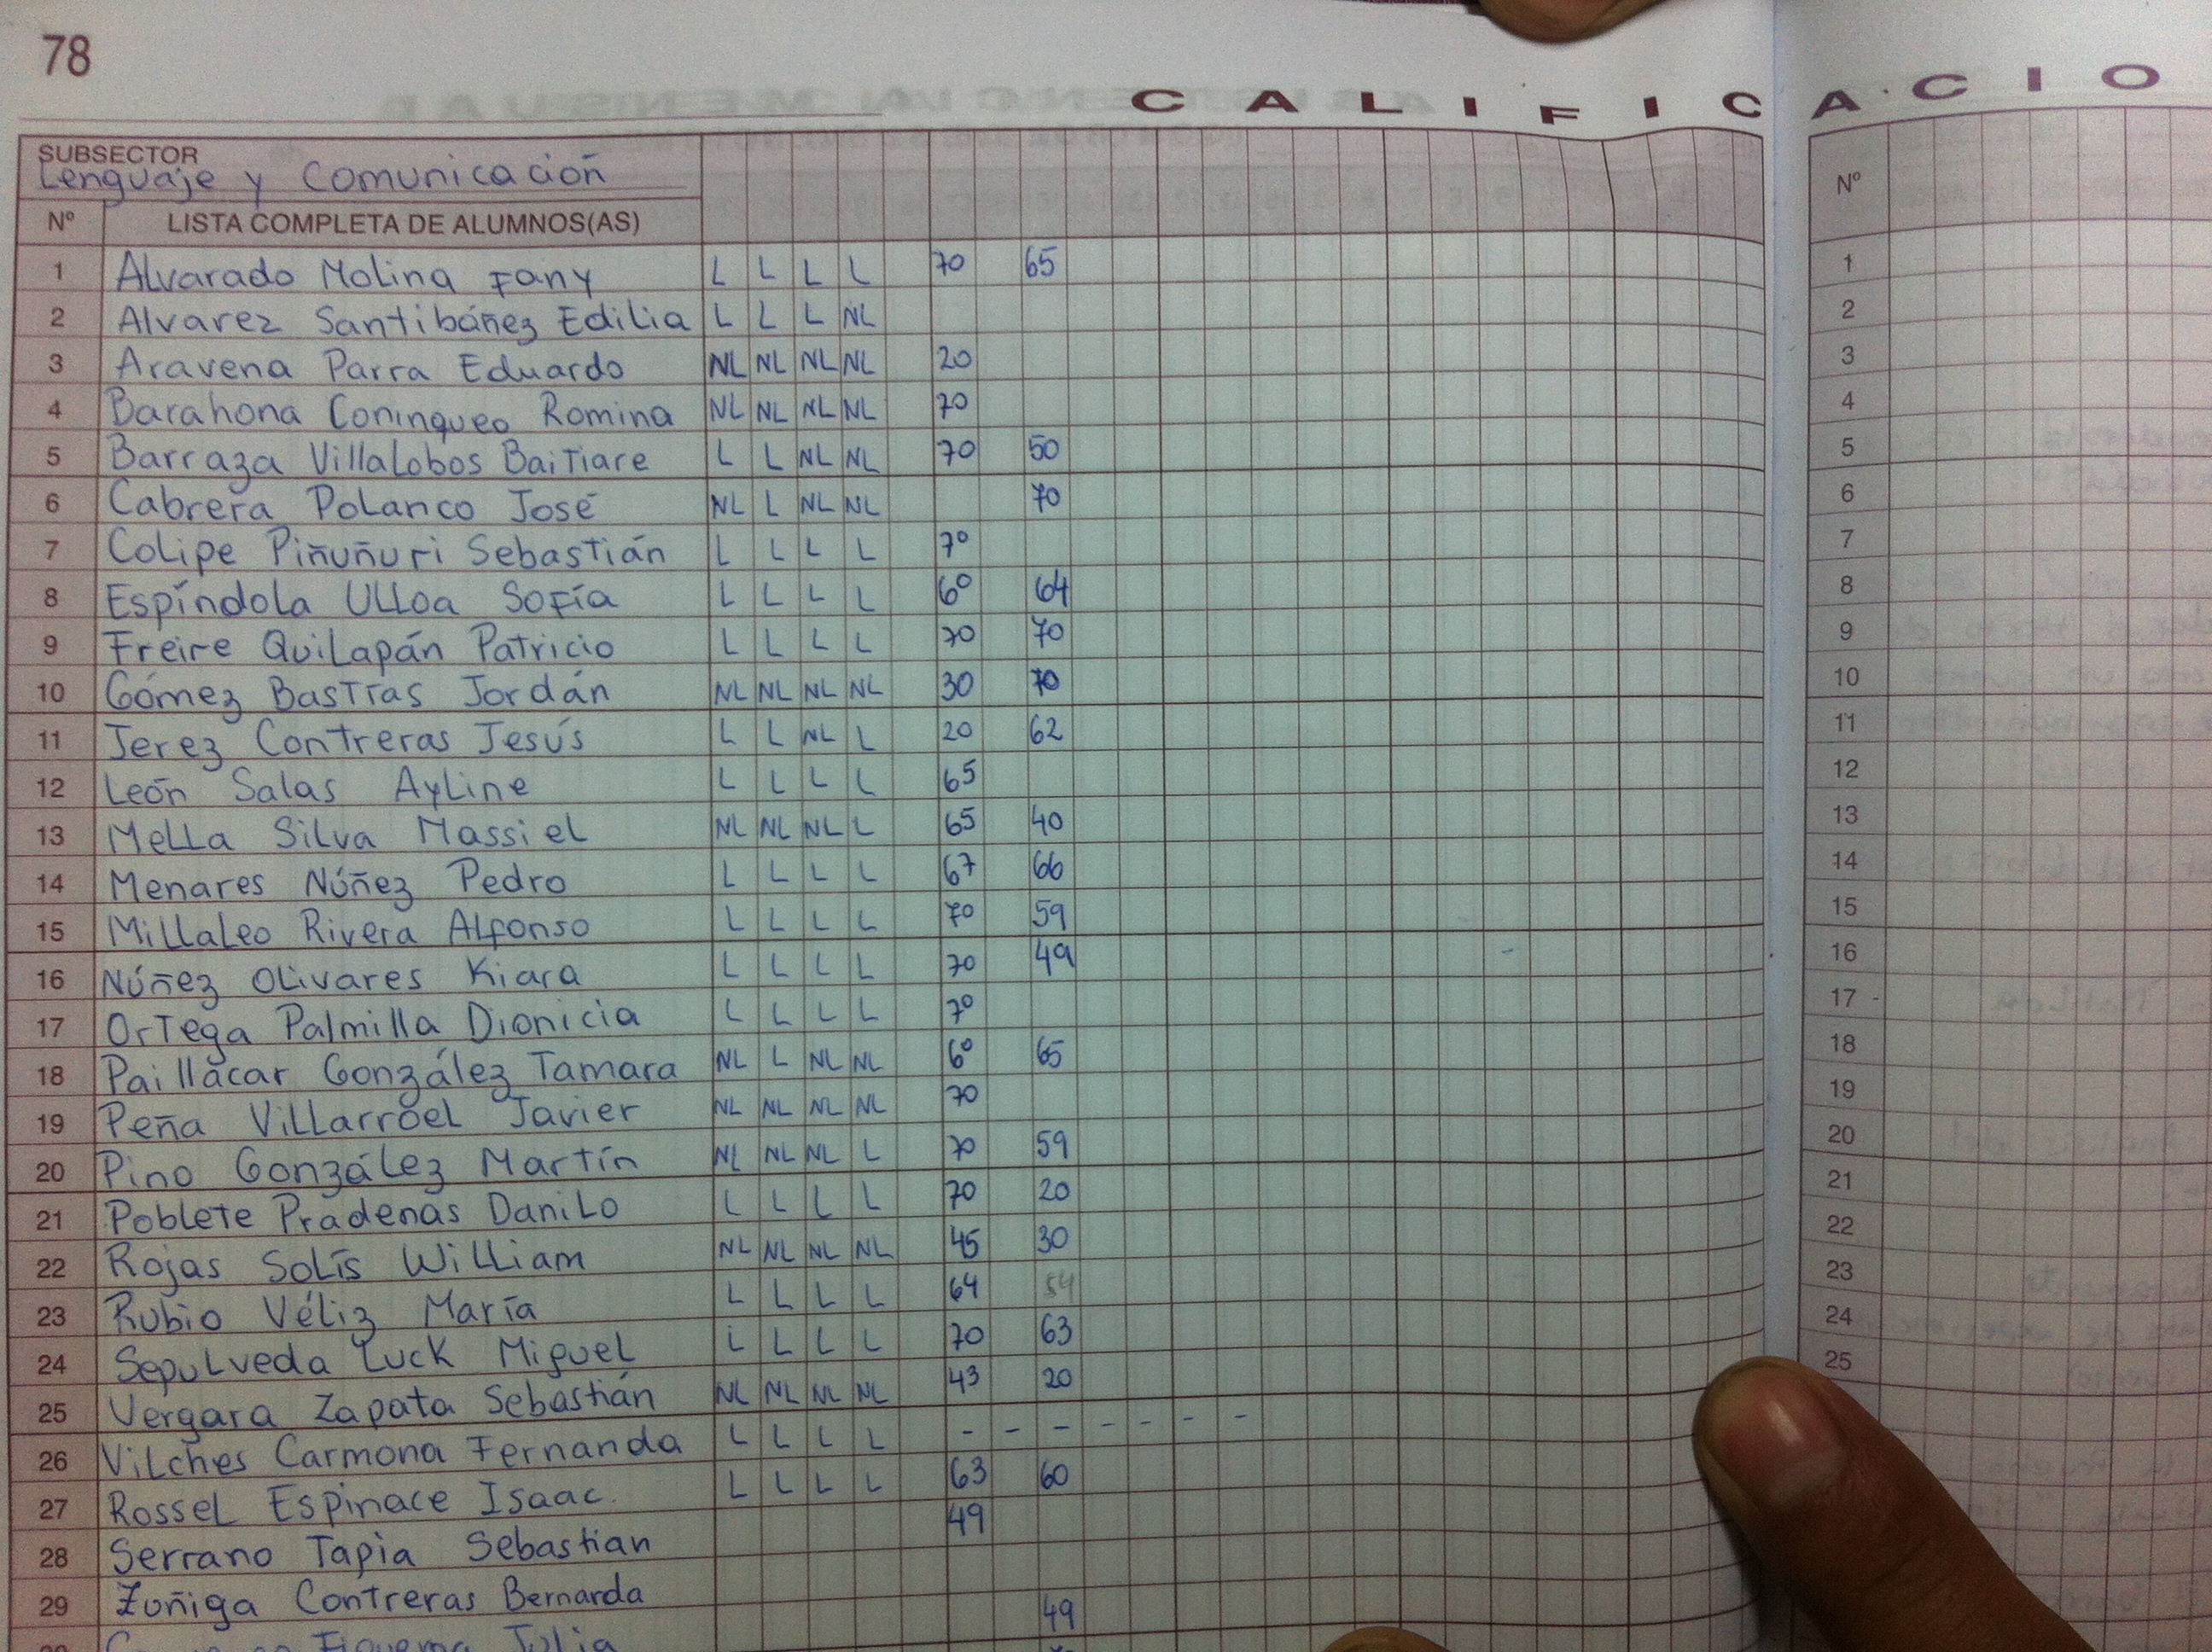 78
C A L I F I C A C I O
SUBSECTOR
Lenguaje y Comunicación
Nº LISTA COMPLETA DE ALUMNOS(AS)
1 Alvarado Molina Fany L L L L 70 65
2 Alvarez Santibáñez Edilia L L L NL
3 Aravena Parra Eduardo NL NL NL NL 20
4 Barahona Coninqueo Romina NL NL NL NL 70
5 Barraza Villalobos Baitiare L L NL NL 70 50
6 Cabrera Polanco José NL L NL NL 70
7 Colipe Piñuñuri Sebastián L L L L 70
8 Espíndola Ulloa Sofía L L L L 60 64
9 Freire Quilapán Patricio L L L L 70 70
10 Gómez Bastías Jordán NL NL NL NL 30 70
11 Jerez Contreras Jesús L L NL L 20 62
12 León Salas Ayline L L L L 65
13 Mella Silva Massiel NL NL NL L 65 40
14 Menares Núñez Pedro L L L L 67 66
15 Millaleo Rivera Alfonso L L L L 70 59
16 Núñez Olivares Kiara L L L L 70 49
17 Ortega Palmilla Dionicia L L L L 70
18 Paillácar González Tamara NL L NL NL 60 65
19 Peña Villarroel Javier NL NL NL NL 70
20 Pino González Martín NL NL NL L 70 59
21 Poblete Pradenas Danilo L L L L 70 20
22 Rojas Solís William NL NL NL NL 45 30
23 Rubio Véliz María L L L L 64
24 Sepulveda Yuck Miguel L L L L 70 63
25 Vergara Zapata Sebastián NL NL NL NL 43 20
26 Vilches Carmona Fernanda L L L L - - - - - - -
27 Rossel Espinace Isaac. L L L L 63 60
28 Serrano Tapia Sebastian 49
29 Zúñiga Contreras Bernarda 49
Nº
1
2
3
4
5
6
7
8
9
10
11
12
13
14
15
16
17
18
19
20
21
22
23
24
25